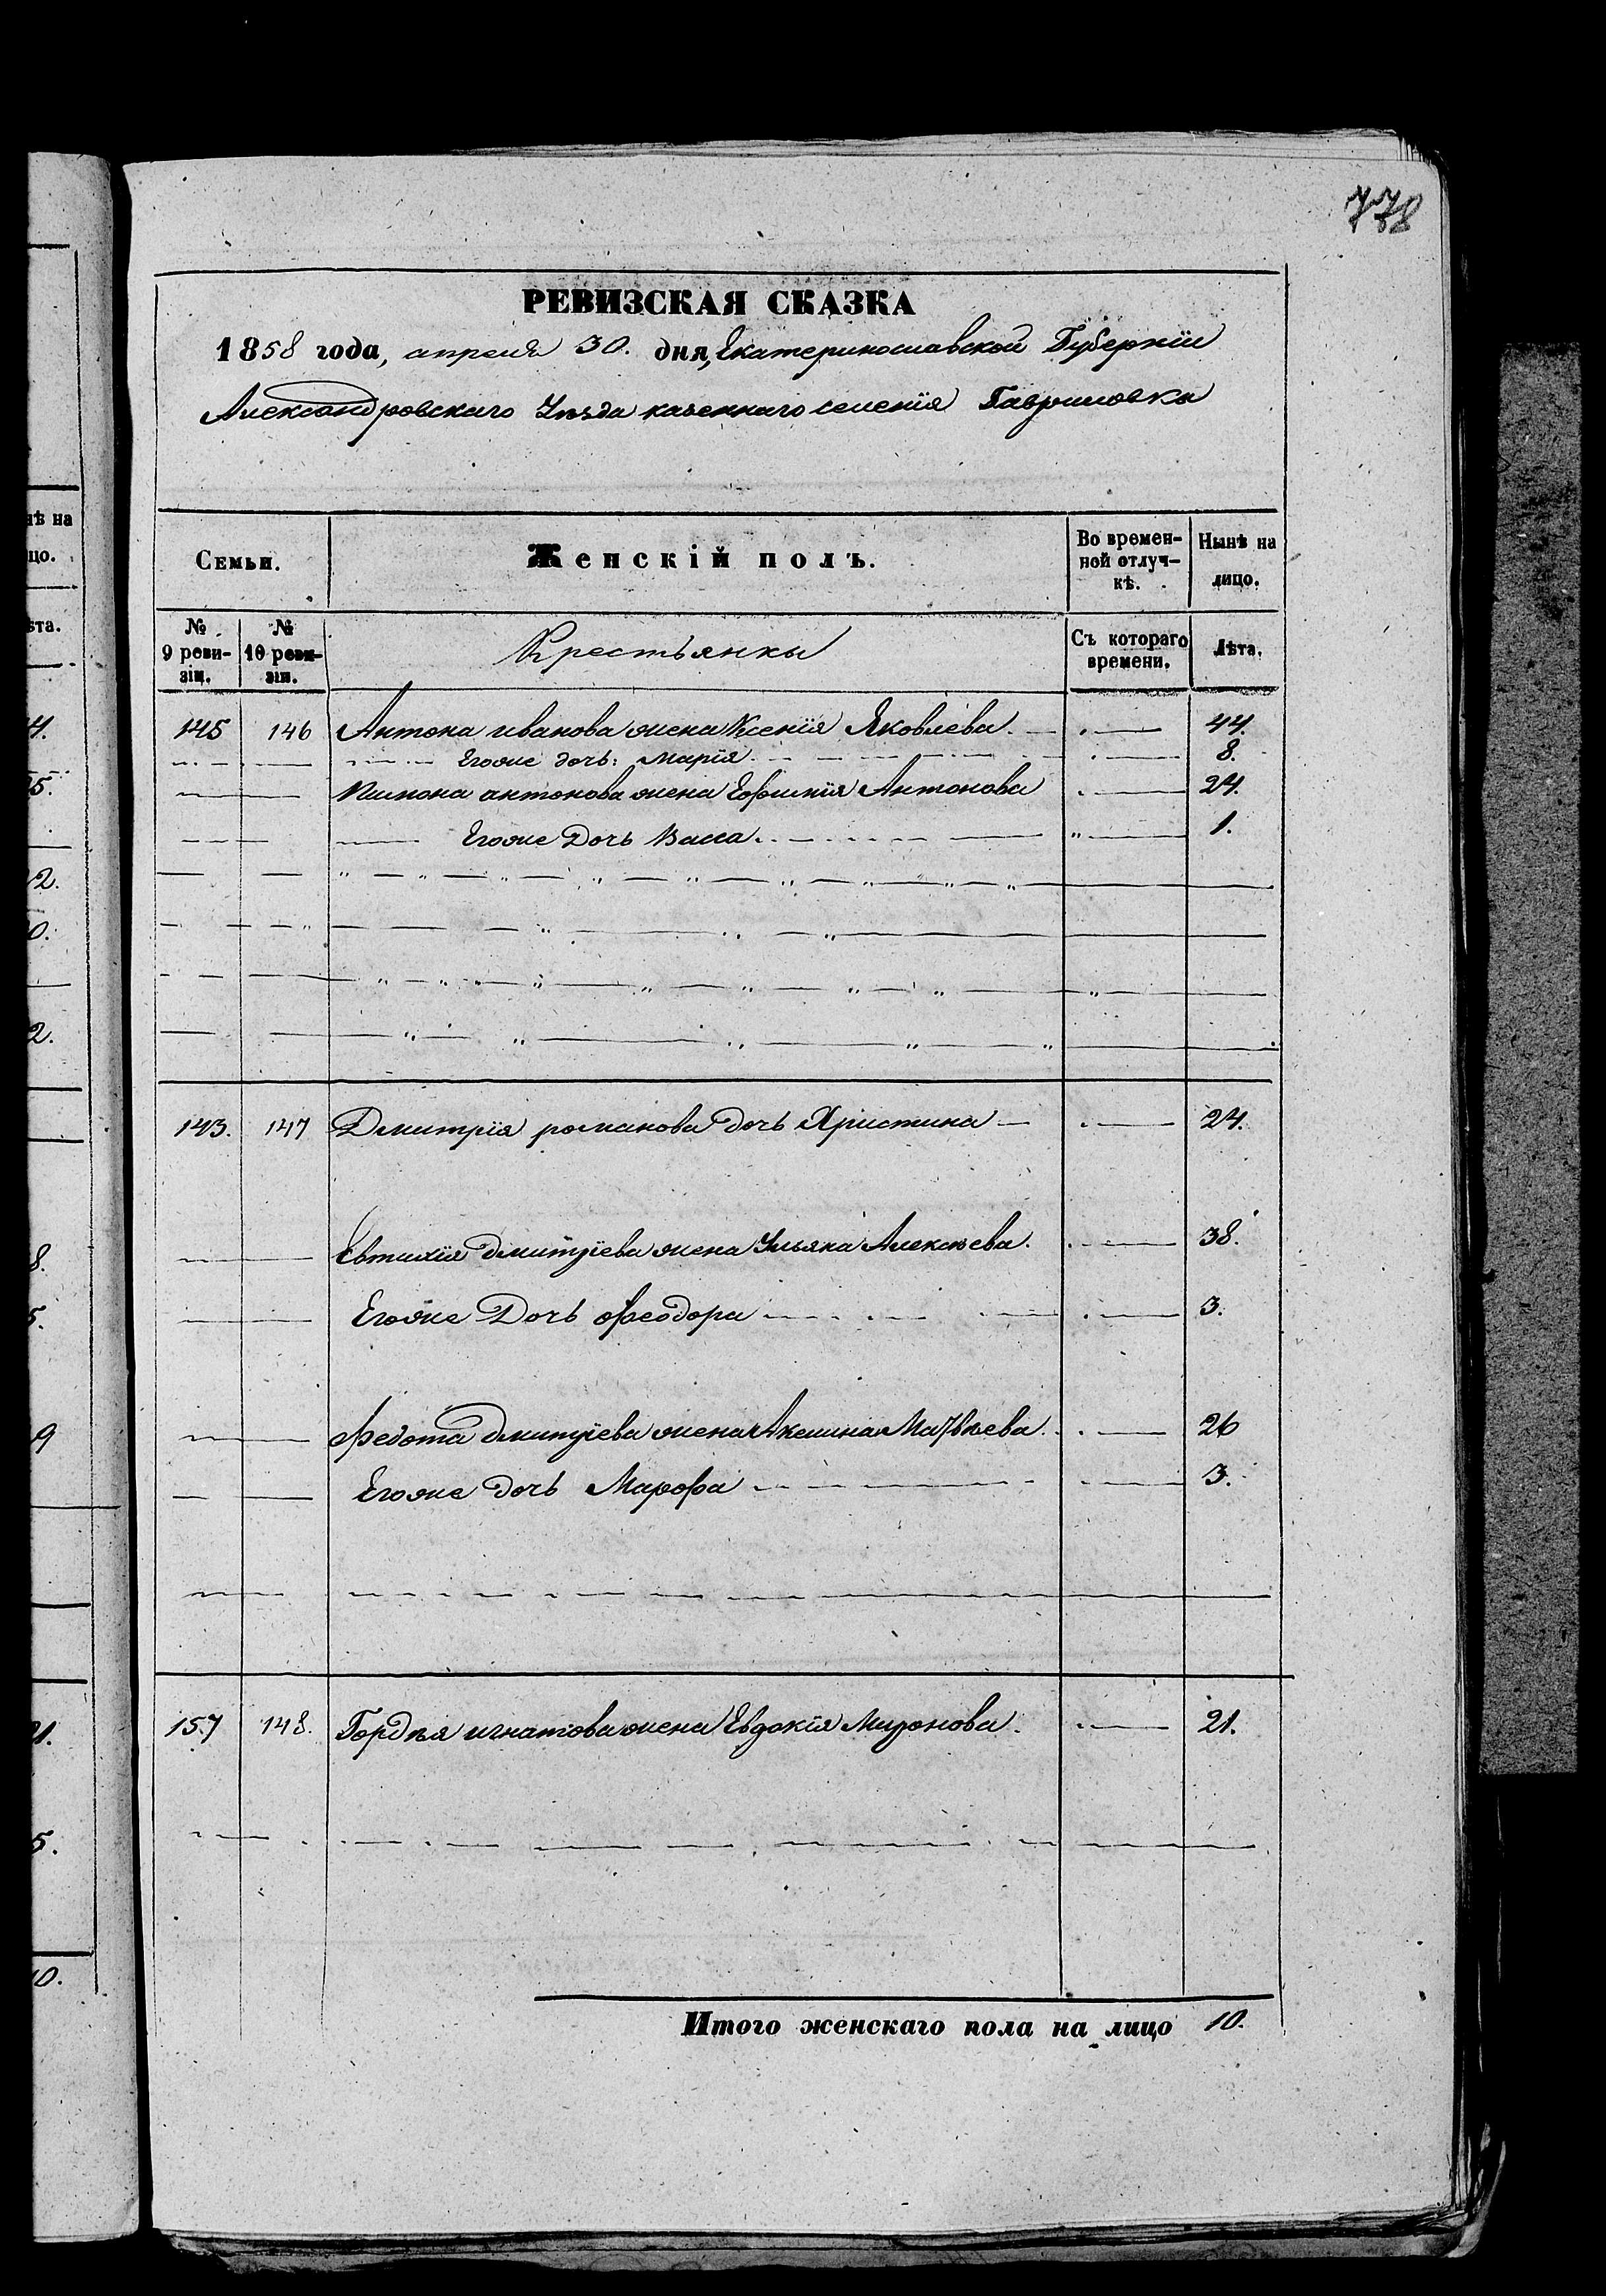 778
РЕВИЗСКАЯ СКАЗКА
1858 года, апреля 30. дня, Екатеринославской Губернiи
Александровскаго Уѣзда казеннаго селенiя Гавриловка
Семьи.
Женскій полъ.
Во времен-
ной отлуч-
кѣ.
Нынѣ на
лицо.
№
9 реви-
зіи.
№
10 реви-
зіи.
Крестьянки
Съ котораго
времени.
Лѣта.
145 146 Антона иванова жена Ксенiя Яковлева. 44.
Егоже дочь: Марiя. 8.
антонова жена Ефимiя Антонова 24.
Егоже Дочь Васса. 1.
143. 147 Дмитрiя романова дочь Христина 24.
Евтихiя дмитрiева жена Ульяна Алексѣева. 38.
Егоже Дочь Феодора 3.
Федота дмитрiева жена Акилина Матвѣева. 26
Егоже дочь Марфа 3.
157 148. Гордѣя игнатова жена Евдокiя Миронова. 21.
Итого женскаго пола на лицо 10.